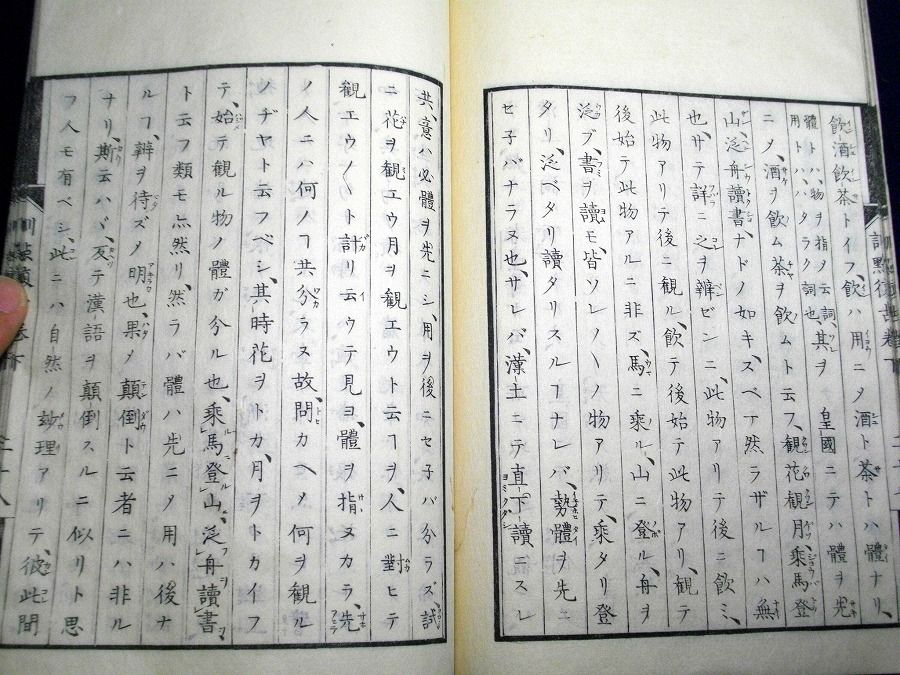 飲酒飲茶トイフ、飲ハ用ニヿ酒ト茶トハ體ナリ、
體トハ、物ヲ指ノ云詞、其ヲ 皇國ニテハ體ヲ先
用トハ、ハタラク詞也、
ニノ、酒ヲ飲ム茶ヲ飲ムト云フ、觀花觀月、乘馬登
山、泛舟讀書、ナドノ如キ、スベテ然ラザルヿハ無
也、サテ詳ニ之ヲ辨ゼンニ、此物アリテ後ニ飲ミ、
此物アリテ後ニ觀ル、飲テ後始テ此物アリ、觀テ
後始テ此物アルニ非ズ、馬ニ乘ル、山ニ登ル、舟ヲ
泛ブ、書ヲ讀モ、皆ソレ〳〵ノ物アリテ、乘タリ登
タリ、泛ベタリ讀タリスルヿナレバ、勢體ヲ先ニ
セ子バナラヌ也、サレバ、漢土ニテ直下讀ニスレ
共、意ハ必體ヲ先ニシ、用ヲ後ニセ子バ分ラズ、試
ニ花ヲ觀エウ月ヲ觀エウト云フヲ、人ニ對ヒテ
觀エウ〳〵ト計リ云ウテ見ヨ、體ヲ指ヌカラ、先
ノ人ニハ何ノヿ共分ラヌ故、問カヘノ何ヲ觀ル
ノヂヤト云フベシ、其時花ヲトカ、月ヲトカイフ
テ、始テ觀ル物ノ體ガ分ル也、乘馬登山、泛舟讀書、
ト云フ類モ亦然リ、然ラバ體ハ先ニノ用ハ後ナ
ルヿ、辨ヲ待ズノ明也、果ノ顛倒ト云者ニハ非ル
ナリ、斯云ハバ、反テ漢語ヲ顛倒スルニ似リト思
フ人モ有ベシ、此ニハ自然ノ玅理アリテ、彼此間